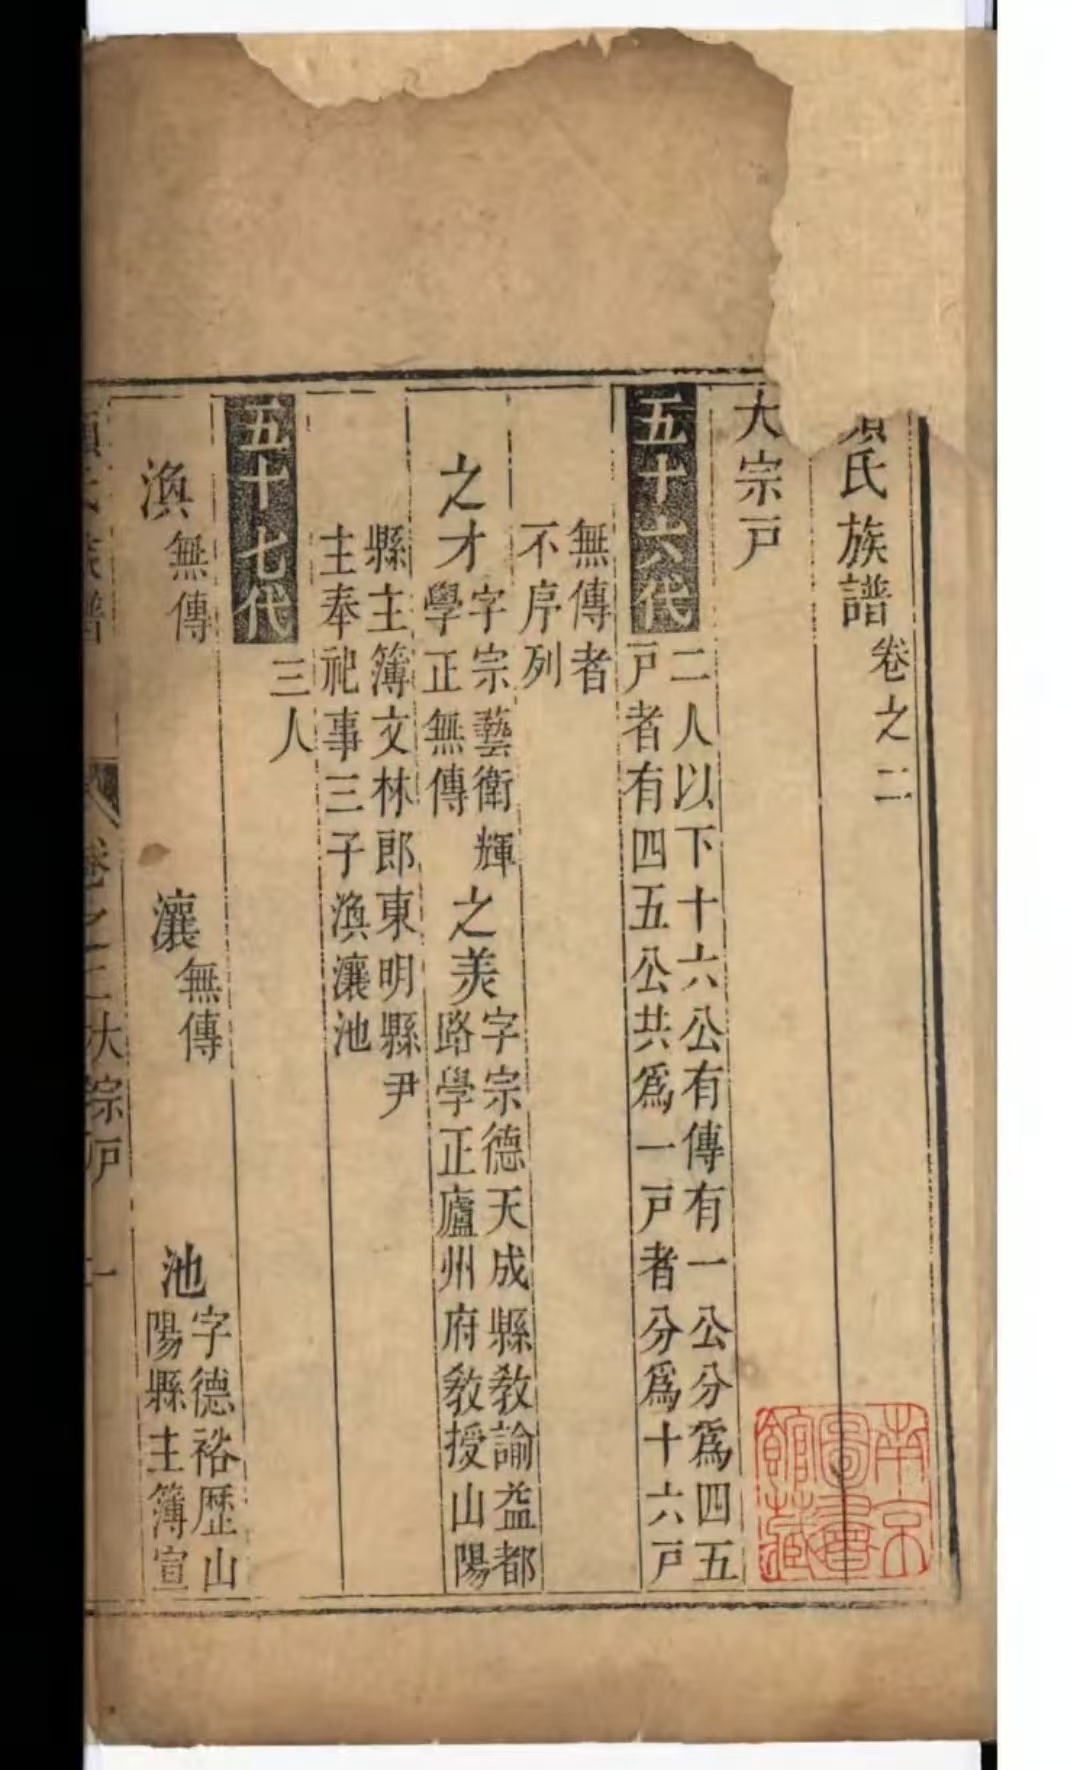 氏族譜卷之二
大宗戸
五十六代
二人以下十六公有傳有一公分爲四五
戸者有四五公共爲一戸者分爲十六戸
無傳者
不序列
之才
字宗藝衛輝
學正無傳
之美
字宗德天成縣教諭益都
路學正廬州府教授山陽
縣主簿文林郎東明縣尹
主奉祀事三子渙瀼池
五十七代
三人
渙
無傳
瀼
無傳
池
字德裕歷山
陽縣主簿宣
氏族譜
卷之二大宗戸
一
南京
圖書
館藏